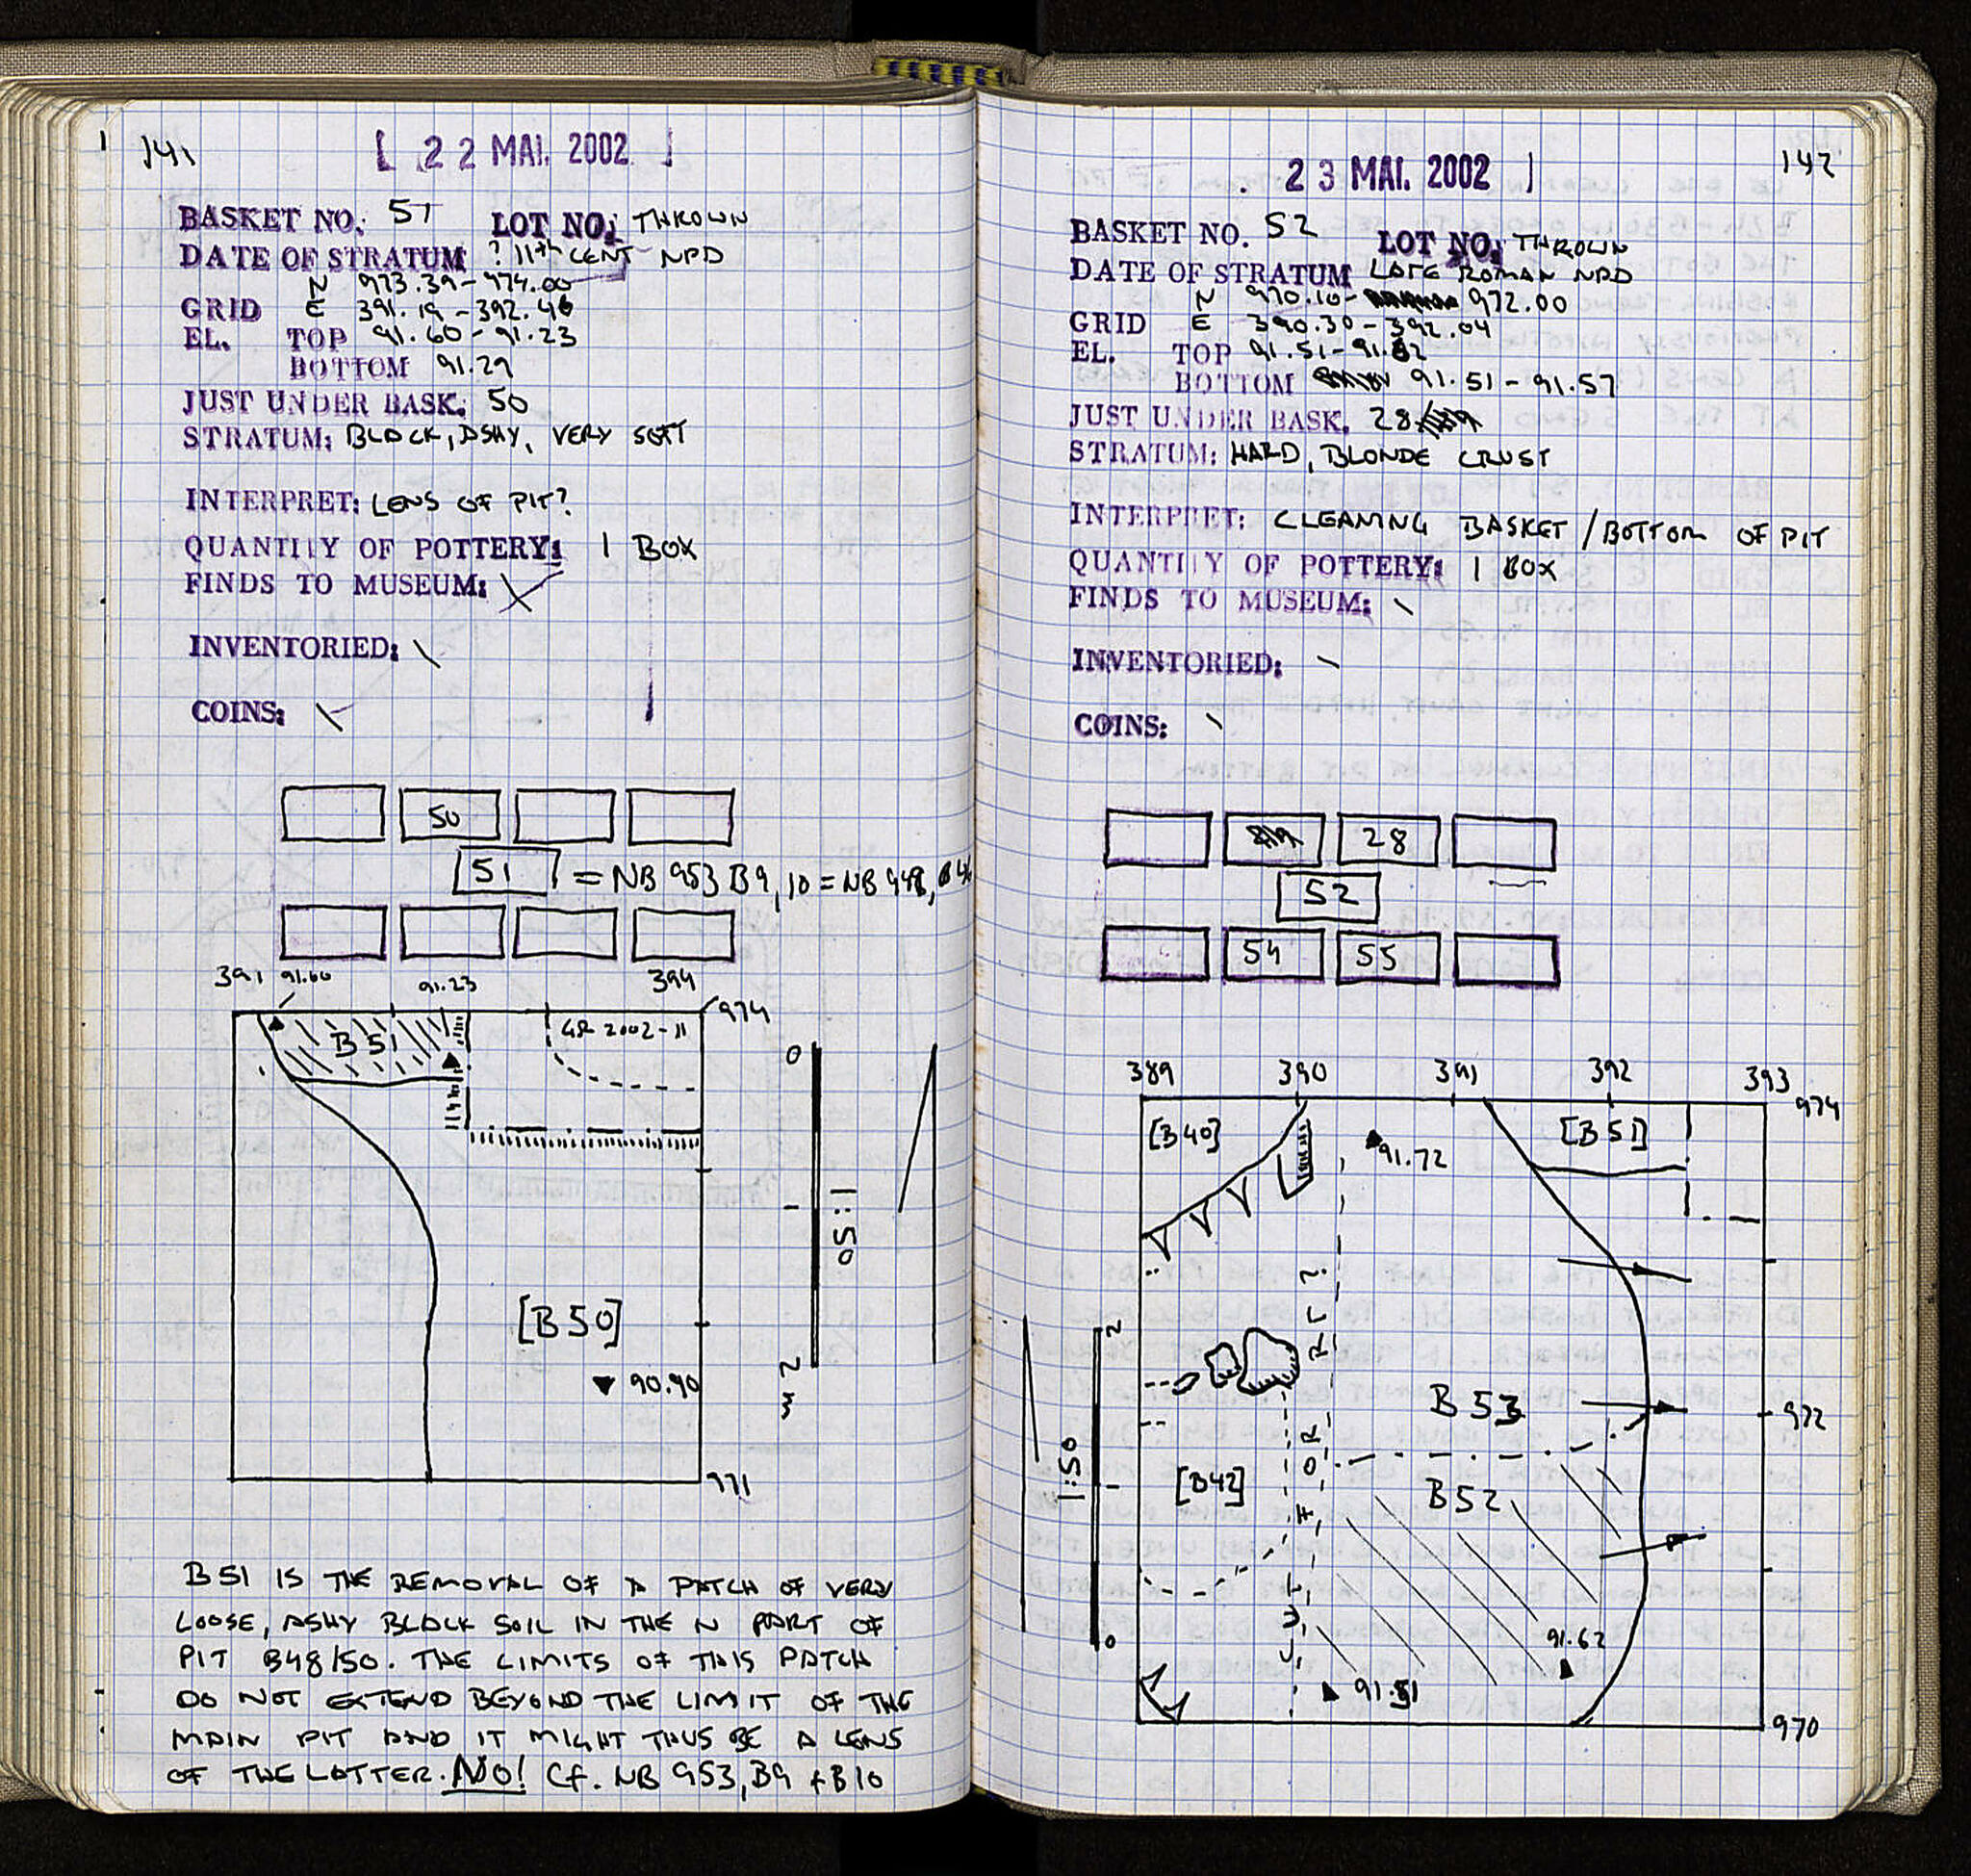 141
22 MAI. 2002
BASKET NO. 51 LOT NO. THROWN
DATE OF STRATUM ? 11th CENT NPD
N 973.39-974.00
GRID E 391.19-392.46
EL. TOP 91.60-91.23
BOTTOM 91.29
JUST UNDER BASK. 50
STRATUM: BLACK, ASHY, VERY SOFT
INTERPRET: LENS OF PIT?
QUANTITY OF POTTERY: 1 BOX
FINDS TO MUSEUM:
INVENTORIED:
COINS:
50
51 = NB 953 B9, 10 = NB 948,
391 91.60 91.23 394
974
B 51
GR 2002-11
0
1
2
M
1:50
[B 50]
90.90
971
B51 IS THE REMOVAL OF A PATCH OF VERY
LOOSE, ASHY BLACK SOIL IN THE N PART OF
PIT B48/50. THE LIMITS OF THIS PATCH
DO NOT EXTEND BEYOND THE LIMIT OF THE
MAIN PIT AND IT MIGHT THUS BE A LENS
OF THE LATTER. NO! Cf. NB 953, B9 + B10
142
23 MAI. 2002
BASKET NO. 52 LOT NO. THROWN
DATE OF STRATUM LATE ROMAN NPD
N 970.10- 972.00
GRID E 390.30-392.04
EL. TOP 91.51-91.62
BOTTOM 91.51-91.57
JUST UNDER BASK. 28
STRATUM: HARD, BLONDE CRUST
INTERPRET: CLEANING BASKET / BOTTOM OF PIT
QUANTITY OF POTTERY: 1 BOX
FINDS TO MUSEUM:
INVENTORIED:
COINS:
28
52
54 55
389 390 391 392 393
974
[B 40]
[B 51]
91.72
B 53
972
[B42]
B 52
91.62
91.51
970
2
1
0
1:50